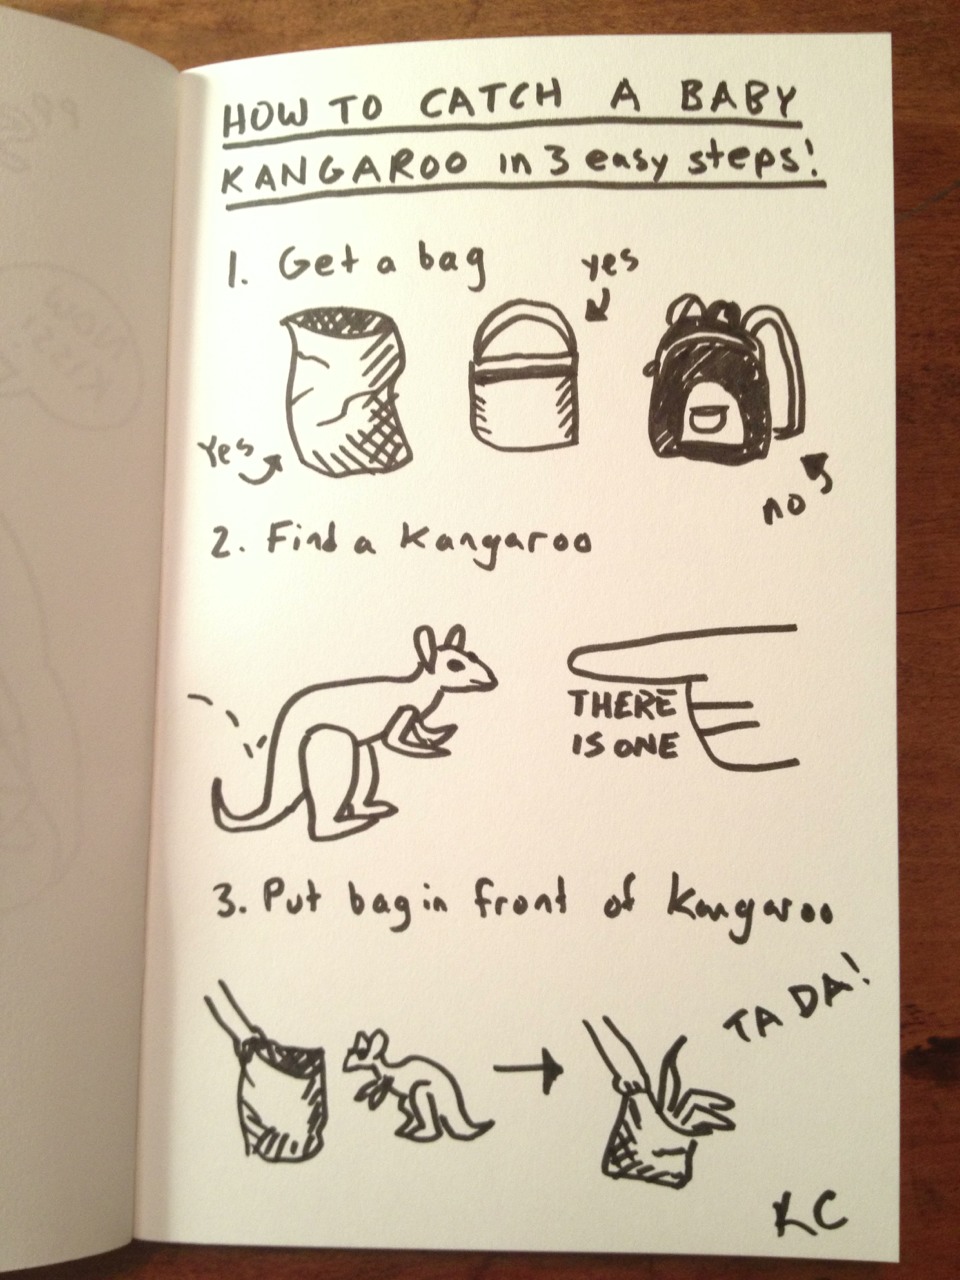 HOW TO CATCH A BABY
KANGAROO in 3 easy steps!
1. Get a bag
yes
Yes
no
2. Find a Kangaroo
THERE
IS ONE
3. Put bag in front of Kangaroo
TA DA!
KC